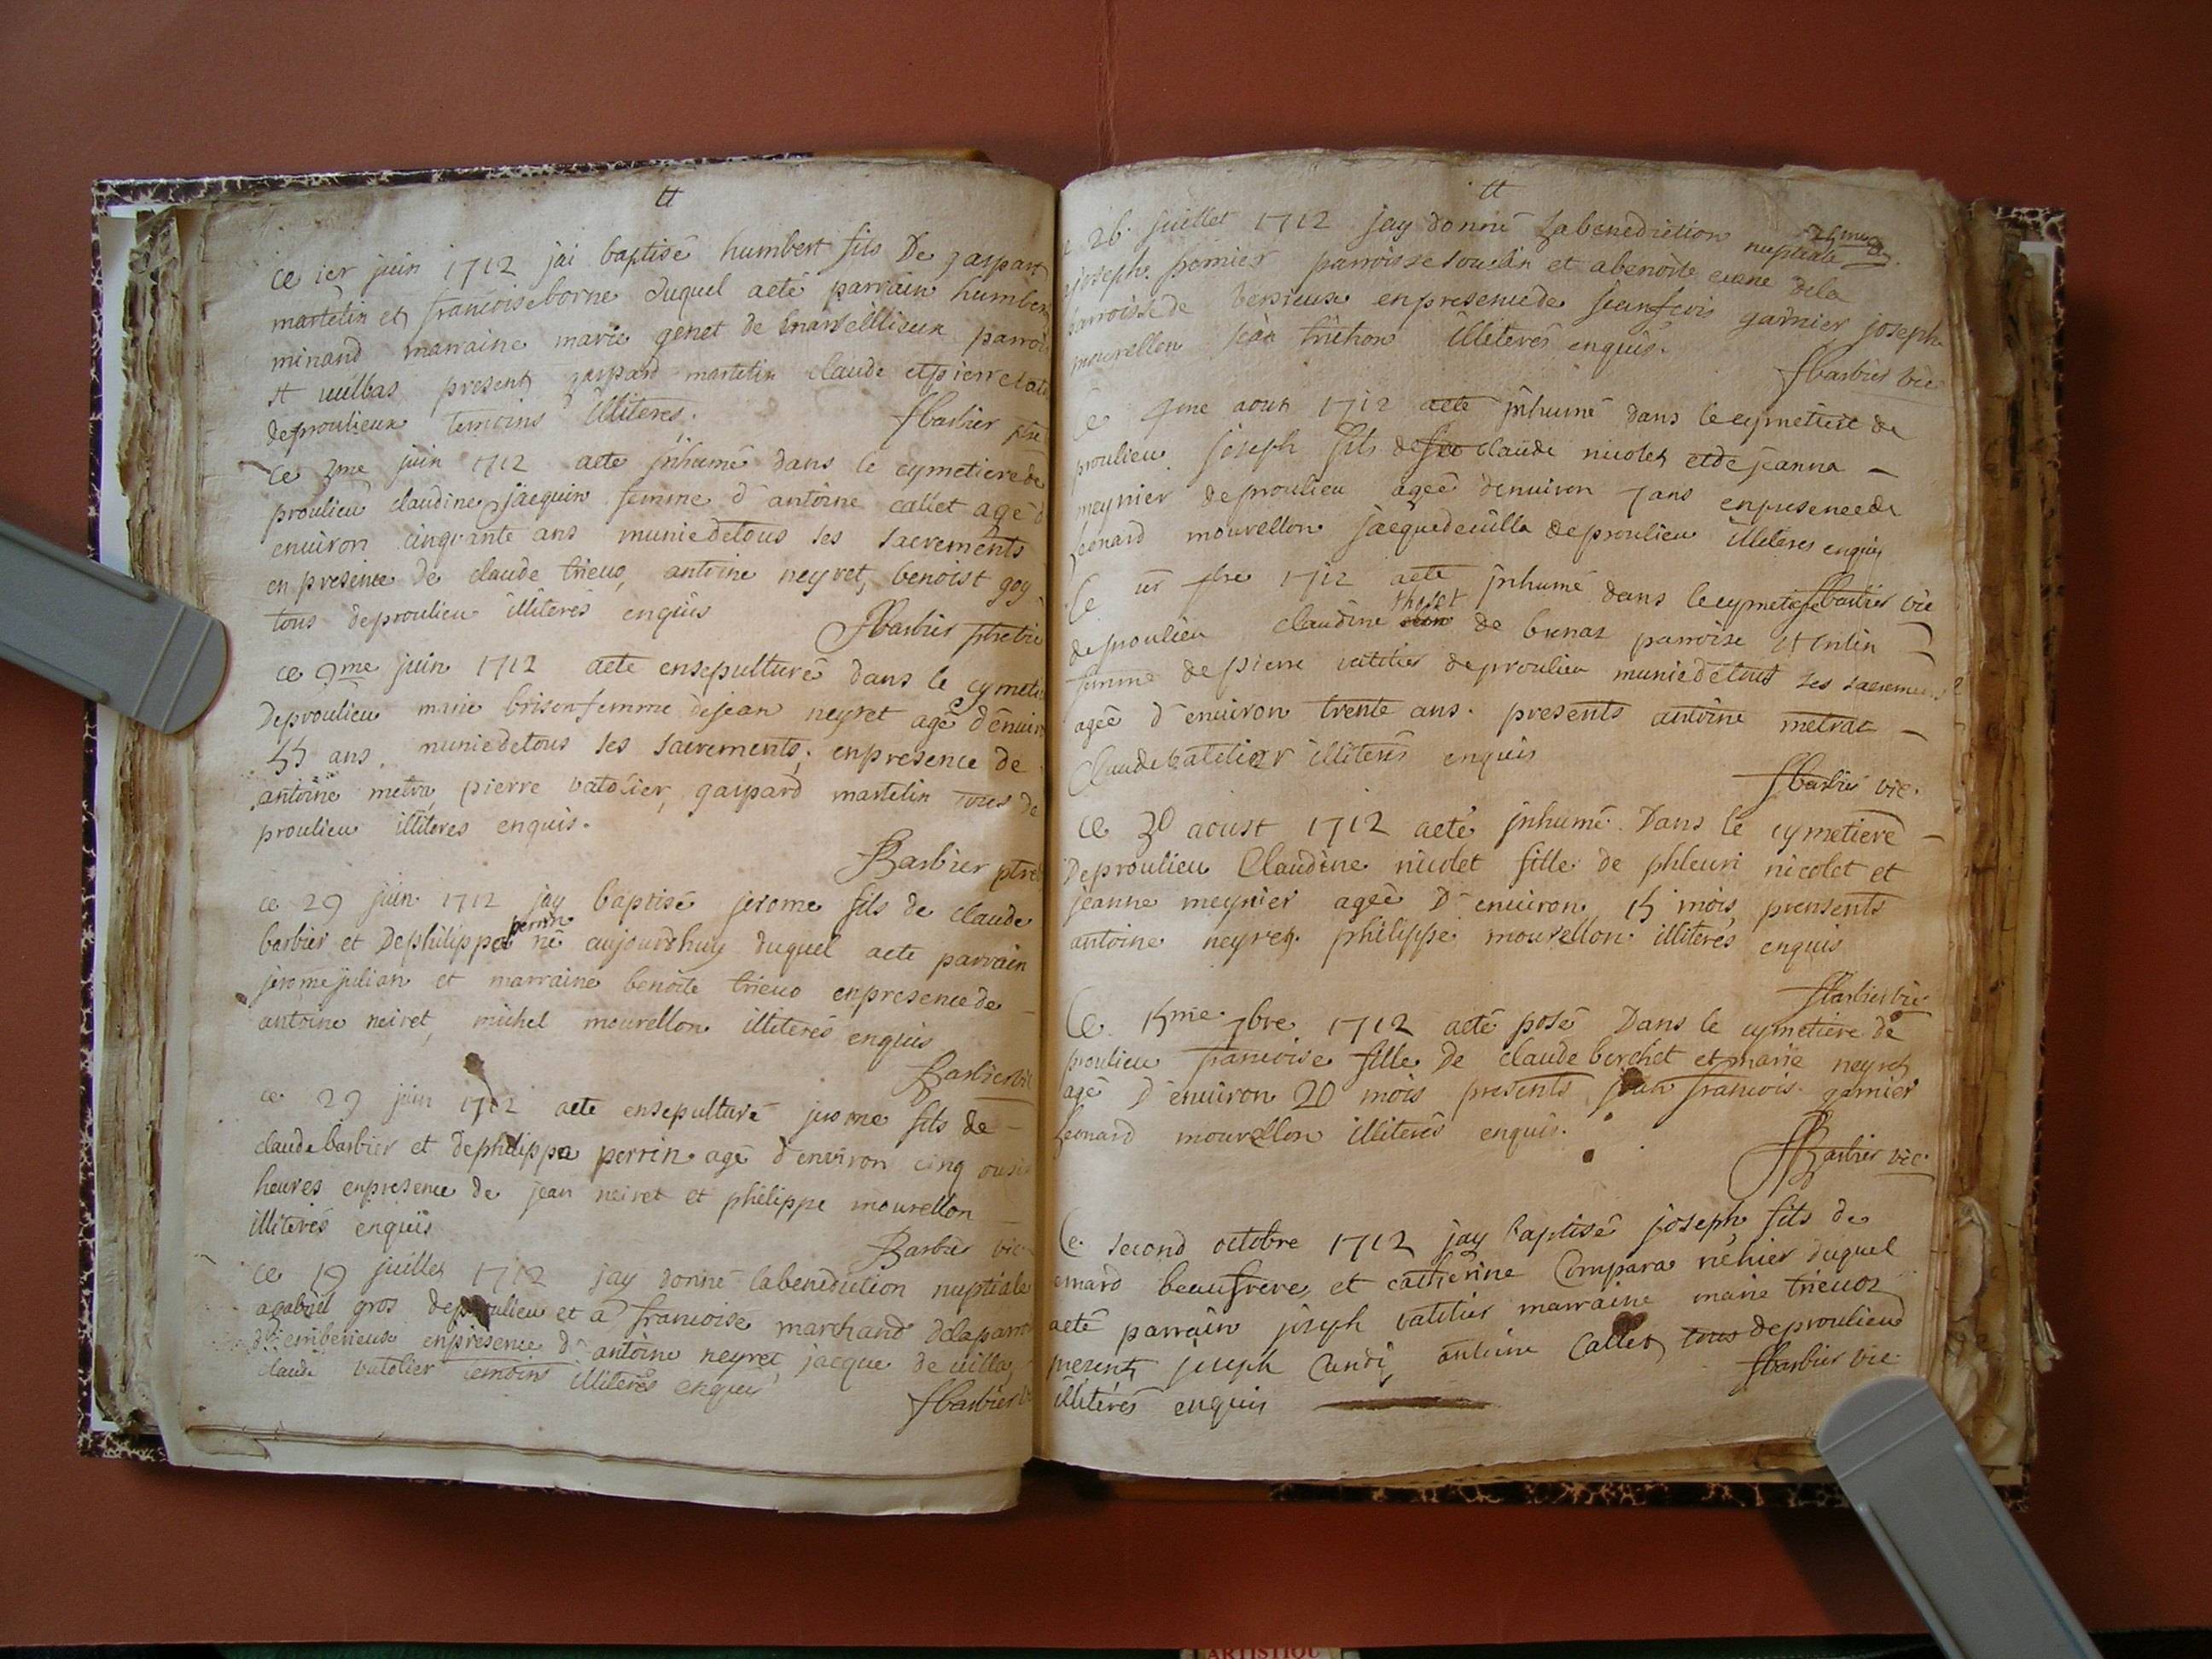 tt
ce ier juin 1712 jai baptisé humbert fils De gaspart
martelin et francoise borne duquel aeté parrain humbert
minand marraine marie genet de parroi
st uulbas present gaspard martelin claude et pierre
deproulieux temoins illiteres. fbarbier ptre
ce 3me juin 1712 aeté jnhumé dans le cymetiere de
proulieu claudine jacquin femme d'antoine callet agé d
enuiron cinquante ans munie detous ses sacrements
en presence de claude trieuo, antoine neyret, benoist goy
tous deproulieu illiterés enquis
fbarbier ptre vic
ce 9me juin 1712 aeté ensepulturé dans le cymeti
Deproulieu marie brison femme dejean neyret agé d'enuir
55 ans. munie detous ses sacrements. enpresence de
antoine metra, pierre vatolier, gaspard martelin tous de
proulieu illiteres enquis.
Barbier ptre
ce 29 juin 1712 jay baptisé jerome fils de claude
barbier et Dephilippa perrin né aujourdhuy duquel aeté parrain
jerome julian et marraine benoite trieuo enpresence de
antoine neiret, michel mourellon illiterés enquis
Barbier vic
ce 29 juin 1712 aeté ensepulturé jerome fils de
claude barbier et dephilippa perrin agé d'environ cinq ou six
heures enpresence de jean neiret et philippe mourellon
illiterés enquis
Barbier vic
ce 19 juillet 1712 jay donné labenediction nuptiale
agabriel gros deproulieu et a francoise marchand delaparroi
d'emberieux enpresence d'antoine neyret, jacque de villa,
claude vatolier temoins illiterés enquis
fbarbier v
tt
26. juillet 1712 jay donné Labenediction nuptiale
joseph pernier parroisse et abenoite dela
parroisse de enpresence de jean fcois garnier joseph
mourellon jean trichon illiterés enquis.
fbarbier vic
Ce 4me aoust 1712 aeté jnhumé dans le cymetiere de
proulieu joseph fils de claude nicolet et de jeanna
meynier deproulieu ageé denuiron 7 ans enpresence de
Leonard mourellon jacque devilla deproulieu illiteres enquis
fbarbier vic
Ce 1er 1712 aeté jnhumé dans le cymetiere
deproulieu claudine de brenaz parroise
femme de pierre vatilier deproulieu munie de tous ses sacrements
ageé d'enuiron trente ans. presents antoine metraz
Claude vatilier illiterés enquis
fbarbier vic.
Ce 30 aoust 1712 aeté jnhumé Dans le cymetiere
Deproulieu Claudine nicolet fille de phleuri nicolet et
jeanne meynier ageé D'enuiron 15 mois prensents
antoine neyret. philippe mourellon illiterés enquis
fbarbier vic
Ce 15me 7bre 1712 aeté posé Dans le cymetiere de
proulieu francoise fille De claude berchet et marie neyret
agé D'enuiron 20 mois presents jean francois garnier
Leonard mourellon illiterés enquis.
fBarbier vic.
Ce second octobre 1712 jay baptisé joseph fils de
emard beaufrere, et catherine Compara né hier duquel
aeté parrain joseph vatilier marraine marie trieuoz
present joseph antoine Callet tous deproulieu
illiterés enquis
fbarbier vic
ARTISTIQU